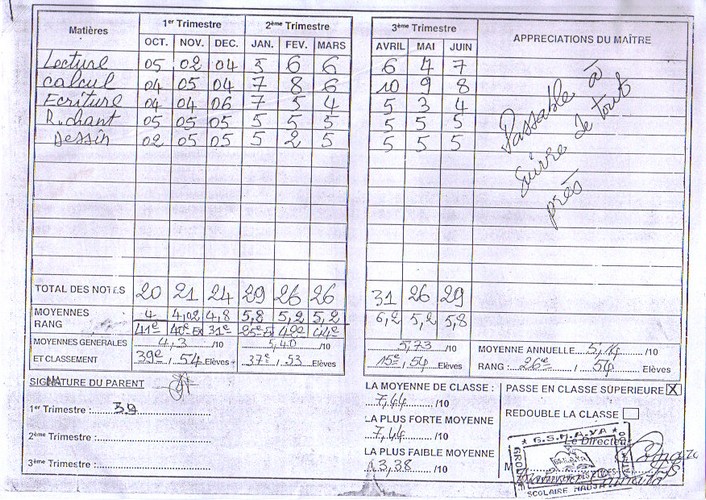 Matières 1er Trimestre 2ème Trimestre 3ème Trimestre APPRECIATIONS DU MAÎTRE
OCT. NOV. DEC. JAN. FEV. MARS AVRIL MAI JUIN
Lecture 05 02 04 5 6 6 6 4 7
Calcul 04 05 04 7 8 6 10 9 8
Ecriture 04 04 06 7 5 4 5 3 4
R.chant 05 05 05 5 5 5 5 5 5
Dessin 02 05 05 5 2 5 5 5 5
Passable à
suivre de tout
près
TOTAL DES NOTES 20 21 24 29 26 26 31 26 29
MOYENNES 4 4,02 4,8 5,8 5,2 5,2 6,2 5,2 5,8
RANG 41e 31e 49e 44e
MOYENNES GENERALES 4,3 /10 5,40 /10 5,73 /10 MOYENNE ANNUELLE 5,14 /10
ET CLASSEMENT 39e / 54 Elèves 37e / 53 Elèves 15e / 54 Elèves RANG : 26e / 54 Elèves
SIGNATURE DU PARENT
1er Trimestre : 39
2ème Trimestre :
3ème Trimestre :
LA MOYENNE DE CLASSE :
7,44 /10
LA PLUS FORTE MOYENNE
7,44 /10
LA PLUS FAIBLE MOYENNE
3,38 /10
PASSE EN CLASSE SUPERIEURE X
REDOUBLE LA CLASSE
Le Directeur
GROUPE
SCOLAIRE